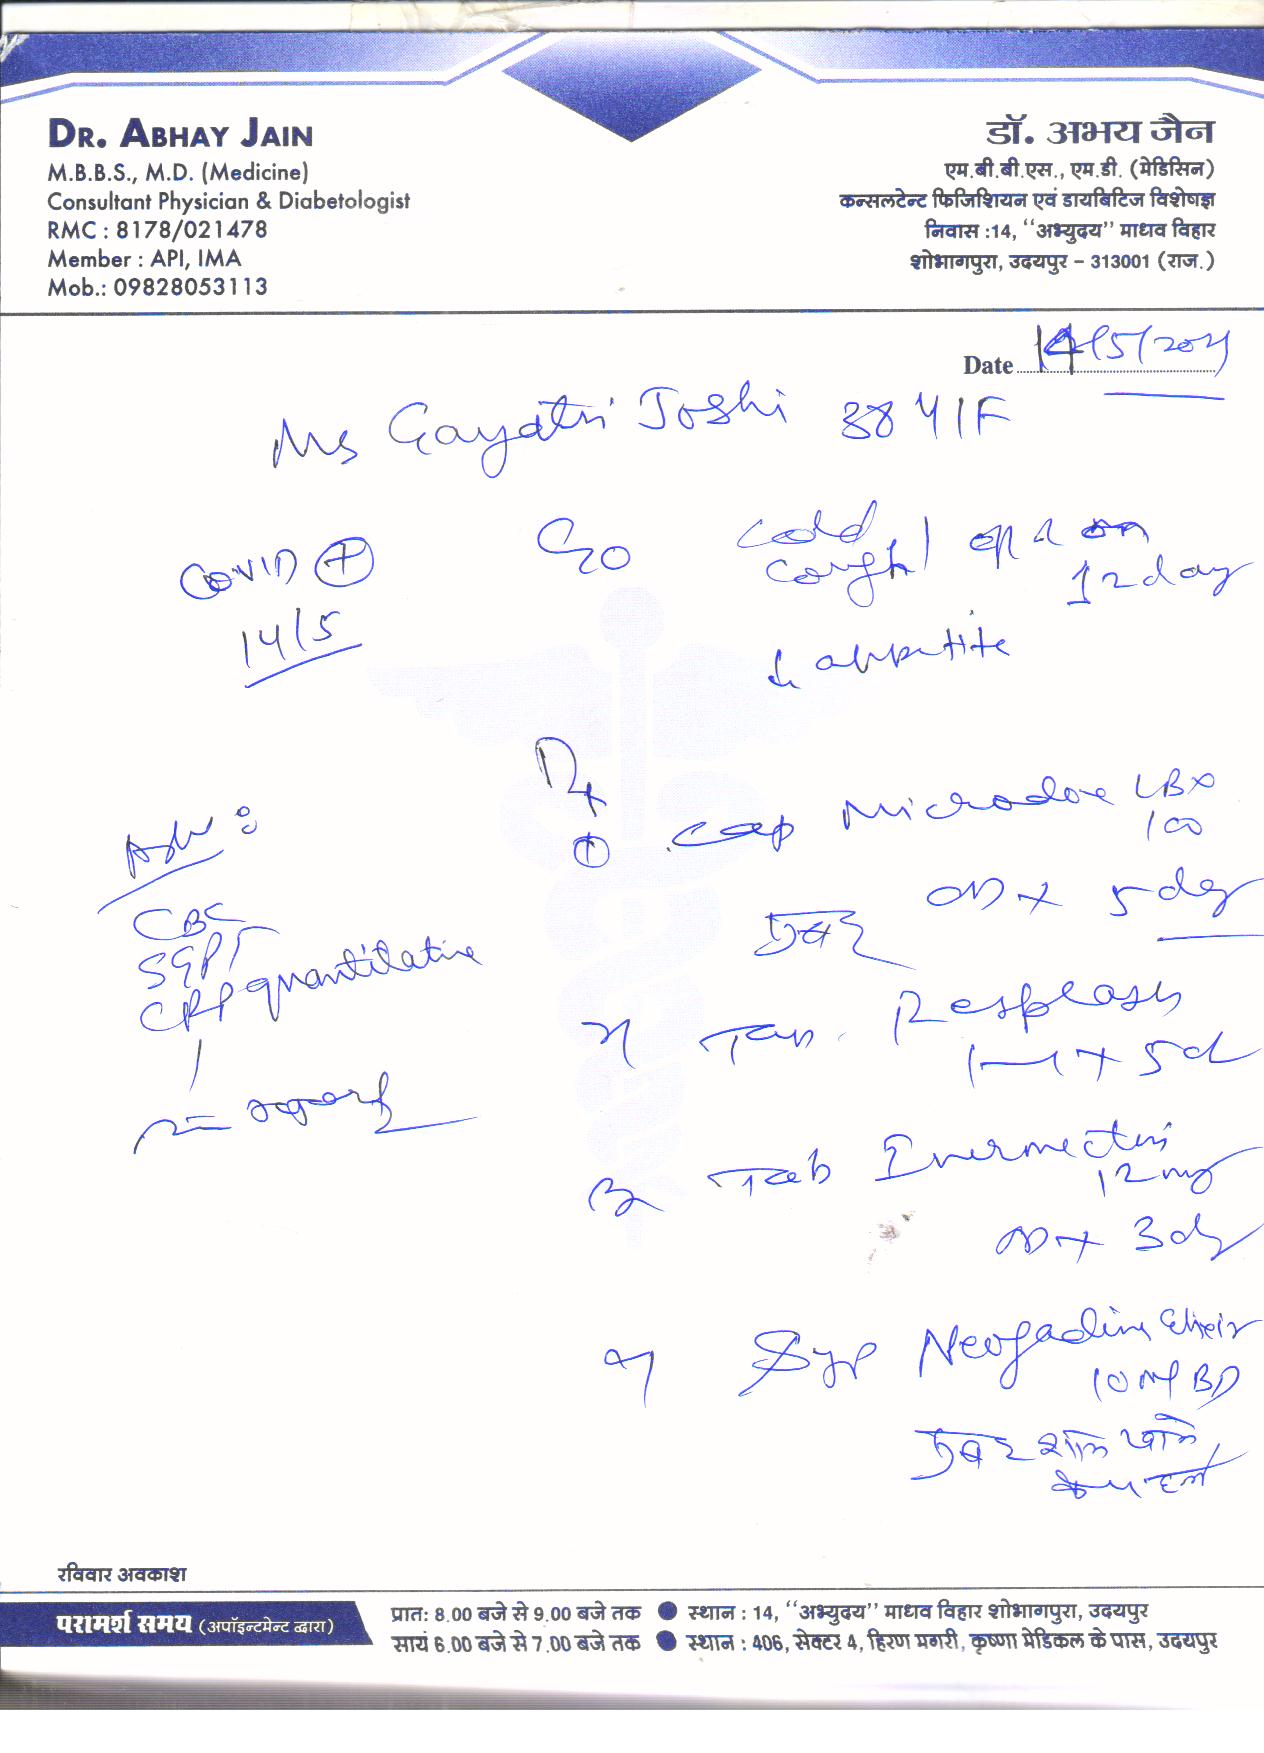 DR. ABHAY JAIN
M.B.B.S., M.D. (Medicine)
Consultant Physician & Diabetologist
RMC : 8178/021478
Member : API, IMA
Mob.: 09828053113
डॉ. अभय जैन
एम.बी.बी.एस., एम.डी. (मेडिसिन)
कन्सलटेन्ट फिजिशियन एवं डायबिटिज विशेषज्ञ
निवास :14, ‘‘अभ्युदय’’ माधव विहार
शोभागपुरा, उदयपुर – 313001 (राज.)
Date 14/5/2021
Ms Gayatri Joshi 38 Y/F
COVID + 14/5
C/O cold
cough
12 day
↓ appetite
Rx
① Cap Microdox LBX
100
OD x 5 day
सुबह
Adv :
CBC
SGPT
CRP quantitative
2) Tab. Resplash
1—1 x 5d
3) Tab Ivermectin
12 mg
OD x 3 dy
4) Syp Neogadine Elixir
10 ml BD
सुबह शाम खाने
के पहले
रविवार अवकाश
परामर्श समय (अपॉइन्टमेन्ट द्वारा)
प्रात: 8.00 बजे से 9.00 बजे तक ● स्थान : 14, ‘‘अभ्युदय’’ माधव विहार शोभागपुरा, उदयपुर
सायं 6.00 बजे से 7.00 बजे तक ● स्थान : 406, सेक्टर 4, हिरण मगरी, कृष्णा मेडिकल के पास, उदयपुर